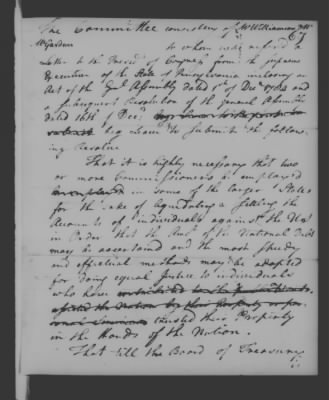 The Committee consisting of Mr Williamson Mr
67
Mr Gardner to whom was referred a
Letter to the Presid. of Congress from the supreme
Executive of the State of Pennsylvania inclosing an
Act of the Genl Assembly Dated 1st of Decr 1784 and
a subsequent Resolution of the general Assembly
Dated 16th of Decr
beg leave to submit the follow-
ing Resolve
That it is highly necessary that two
or more Commissioners be employed
in some of the larger States
for the sake of liquidating & settling the
Accounts of individuals against the U.S.
in Order that the Amt of the National Debt
may be ascertained and the most speedy
and effectual methods may be adopted
for doing equal Justice to individuals
who have
trusted their Property
in the Hands of the Nation.
That till the Board of Treasury